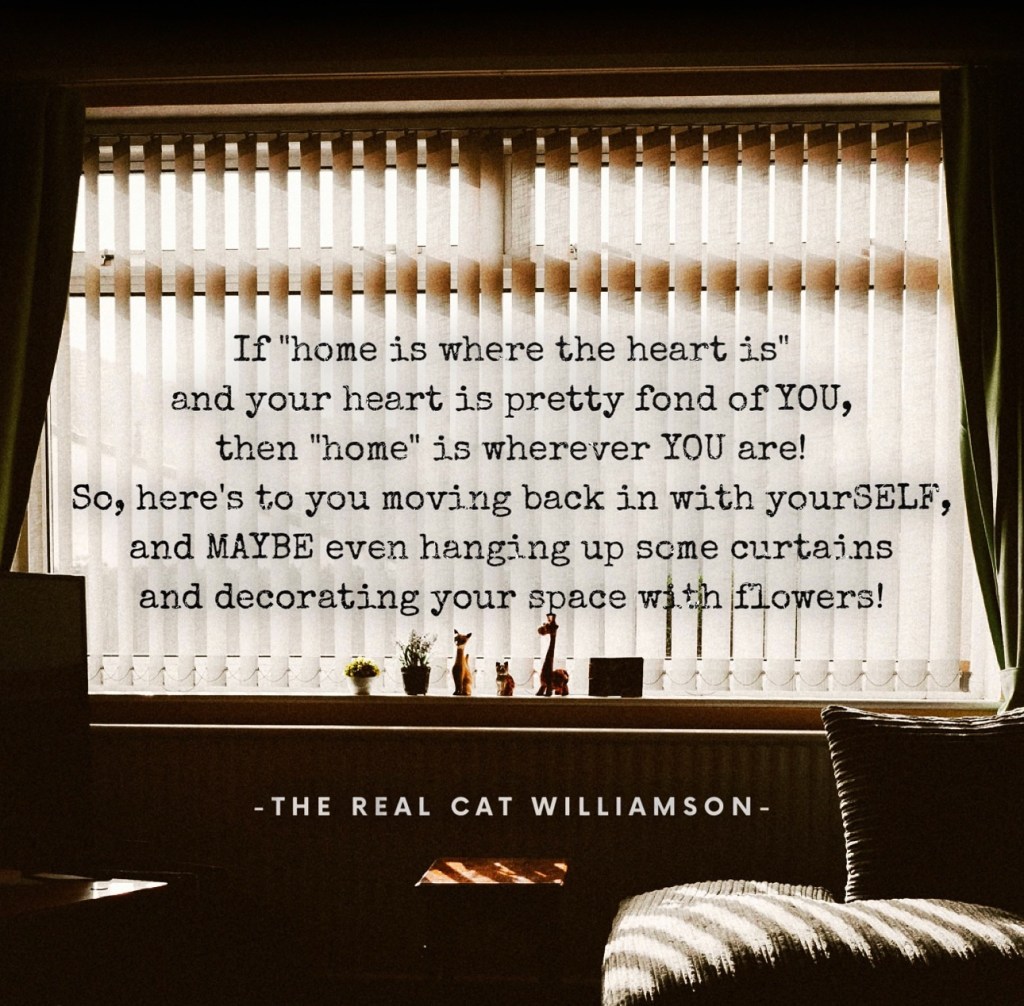 If "home is where the heart is"
and your heart is pretty fond of YOU,
then "home" is wherever YOU are!
So, here's to you moving back in with yourSELF,
and MAYBE even hanging up some curtains
and decorating your space with flowers!
-THE REAL CAT WILLIAMSON-